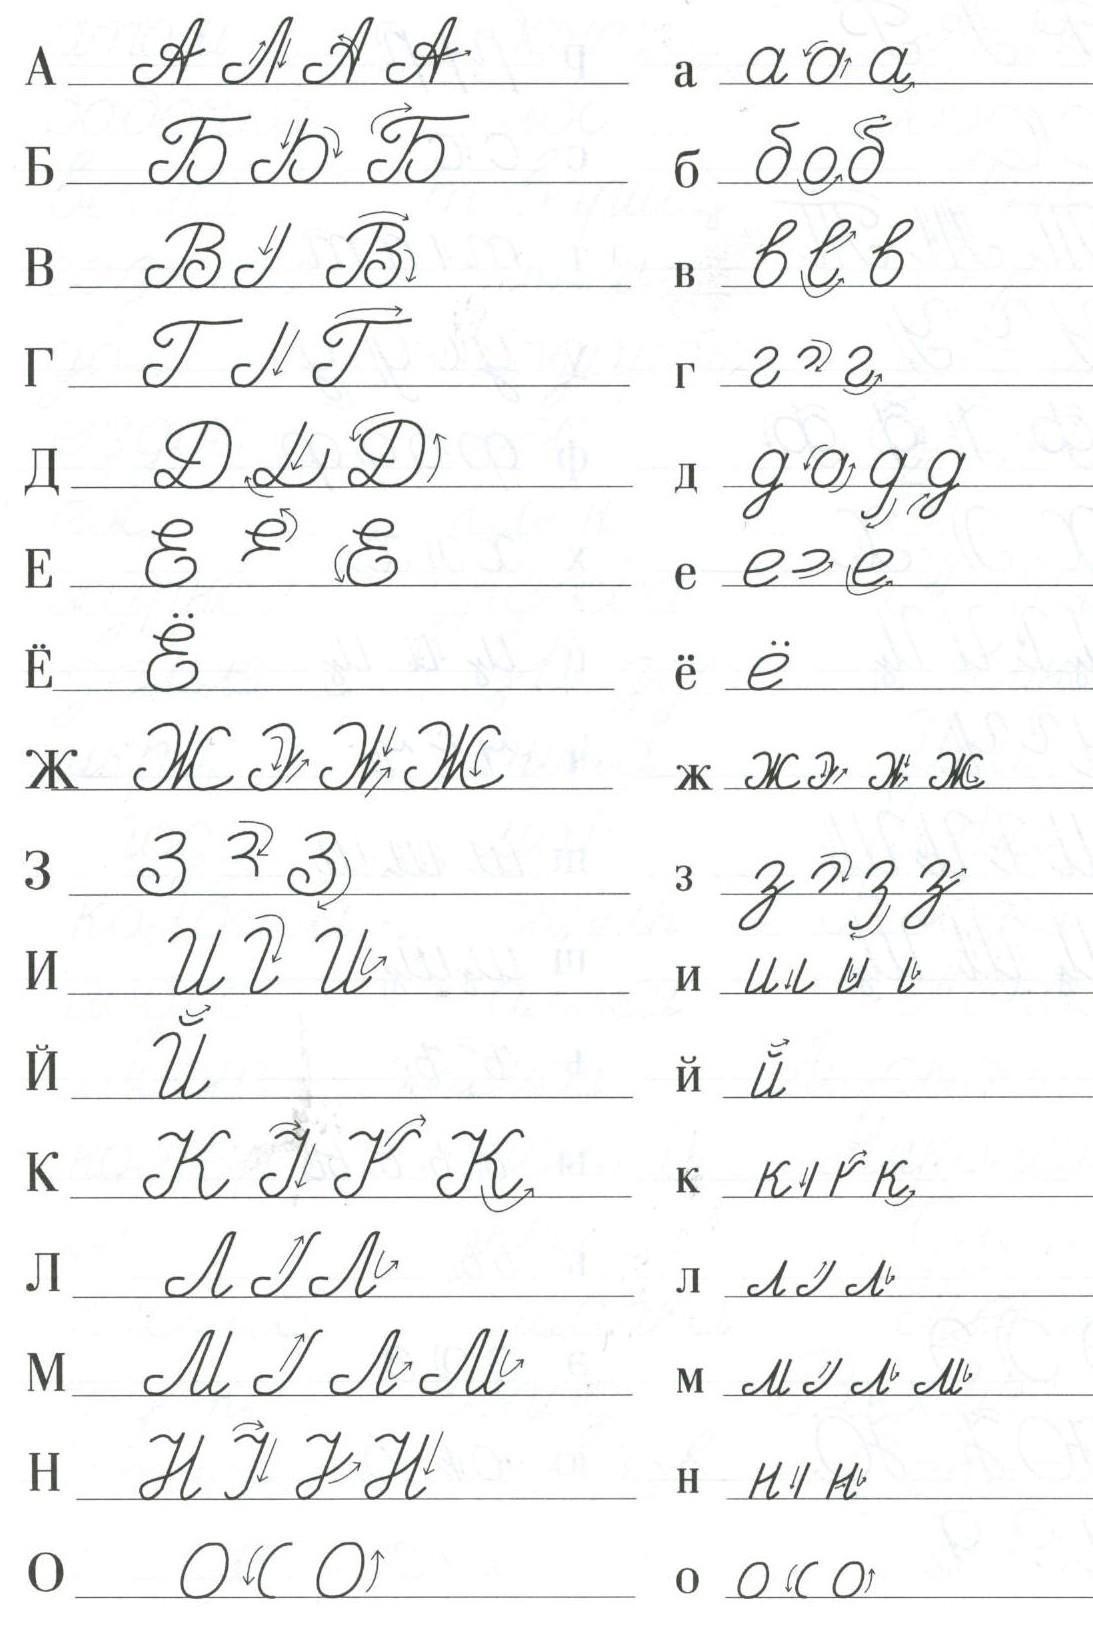 А А А А а а о а
Б Б Ь Б б б о б
В В В в в в
Г Г Г г г г
Д Д Д д д а д д
Е Е Е е е е
Ё Ё ё ё
Ж Ж Ж ж ж ж
З З З з з з з
И И И и и и
Й Й й й
К К К к к к
Л Л Л л л л
М М Л М м м л м
Н Н Н н н н
О О С О о о с о